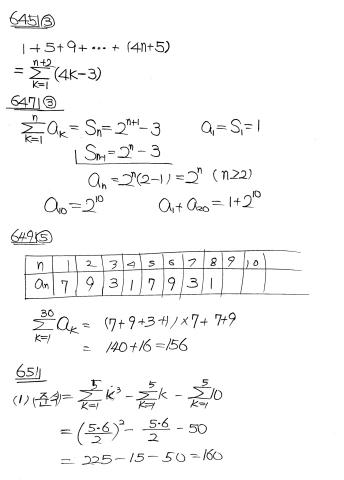 645) ③
1+5+9+ ⋯ + (4n+5)
= Σ_{k=1}^{n+2} (4k-3)
647) ③
Σ_{k=1}^{n} a_k = S_n = 2^{n+1} - 3    a_1 = S_1 = 1
S_{n-1} = 2^n - 3
a_n = 2^n(2-1) = 2^n (n≥2)
a_10 = 2^10    a_1 + a_20 = 1 + 2^10
649) ⑤
n 1 2 3 4 5 6 7 8 9 10
a_n 7 9 3 1 7 9 3 1
Σ_{k=1}^{30} a_k = (7+9+3+1)×7 + 7+9
= 140+16 = 156
651)
(1) (준식) = Σ_{k=1}^{5} k^3 - Σ_{k=1}^{5} k - Σ_{k=1}^{5} 10
= (5·6/2)^2 - 5·6/2 - 50
= 225-15-50 = 160